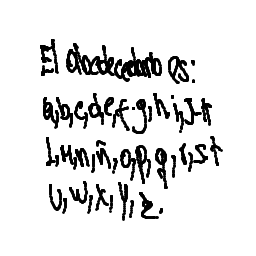 El abecedario es:
a,b,c,d,e,f,g,h,i,J,k
L,M,n,ñ,o,p,q,r,s,t
U,w,x,y,z.